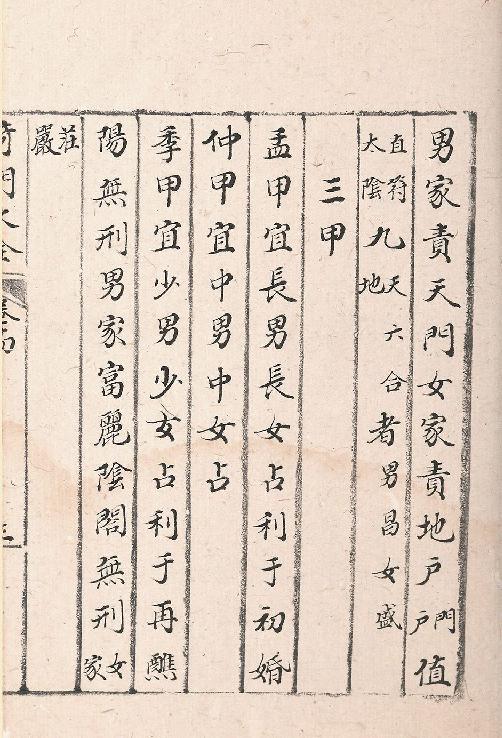 男家責天門女家責地戶門戶值
直符大陰九天地六合者男昌女盛
三甲
孟甲宜長男長女占利于初婚
仲甲宜中男中女占
季甲宜少男少女占利于再醮
陽無刑男家富麗陰閤無刑女家
莊嚴